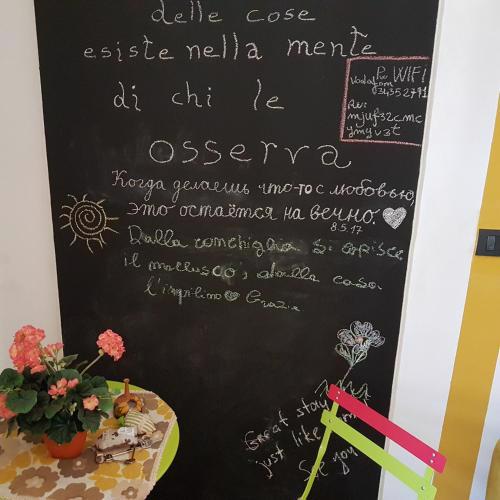 delle cose
esiste nella mente
di chi le
osserva
Per WIFI
Vodafone
34352791
PW:
mjuf32cmc
ymyv3t
Когда делаешь что-то с любовью,
это остаётся на вечно.
8.5.17
Dalla conchiglia si capisce
il mollusco, dalla casa
l'inquilino Grazie
Great stay
just like
See you